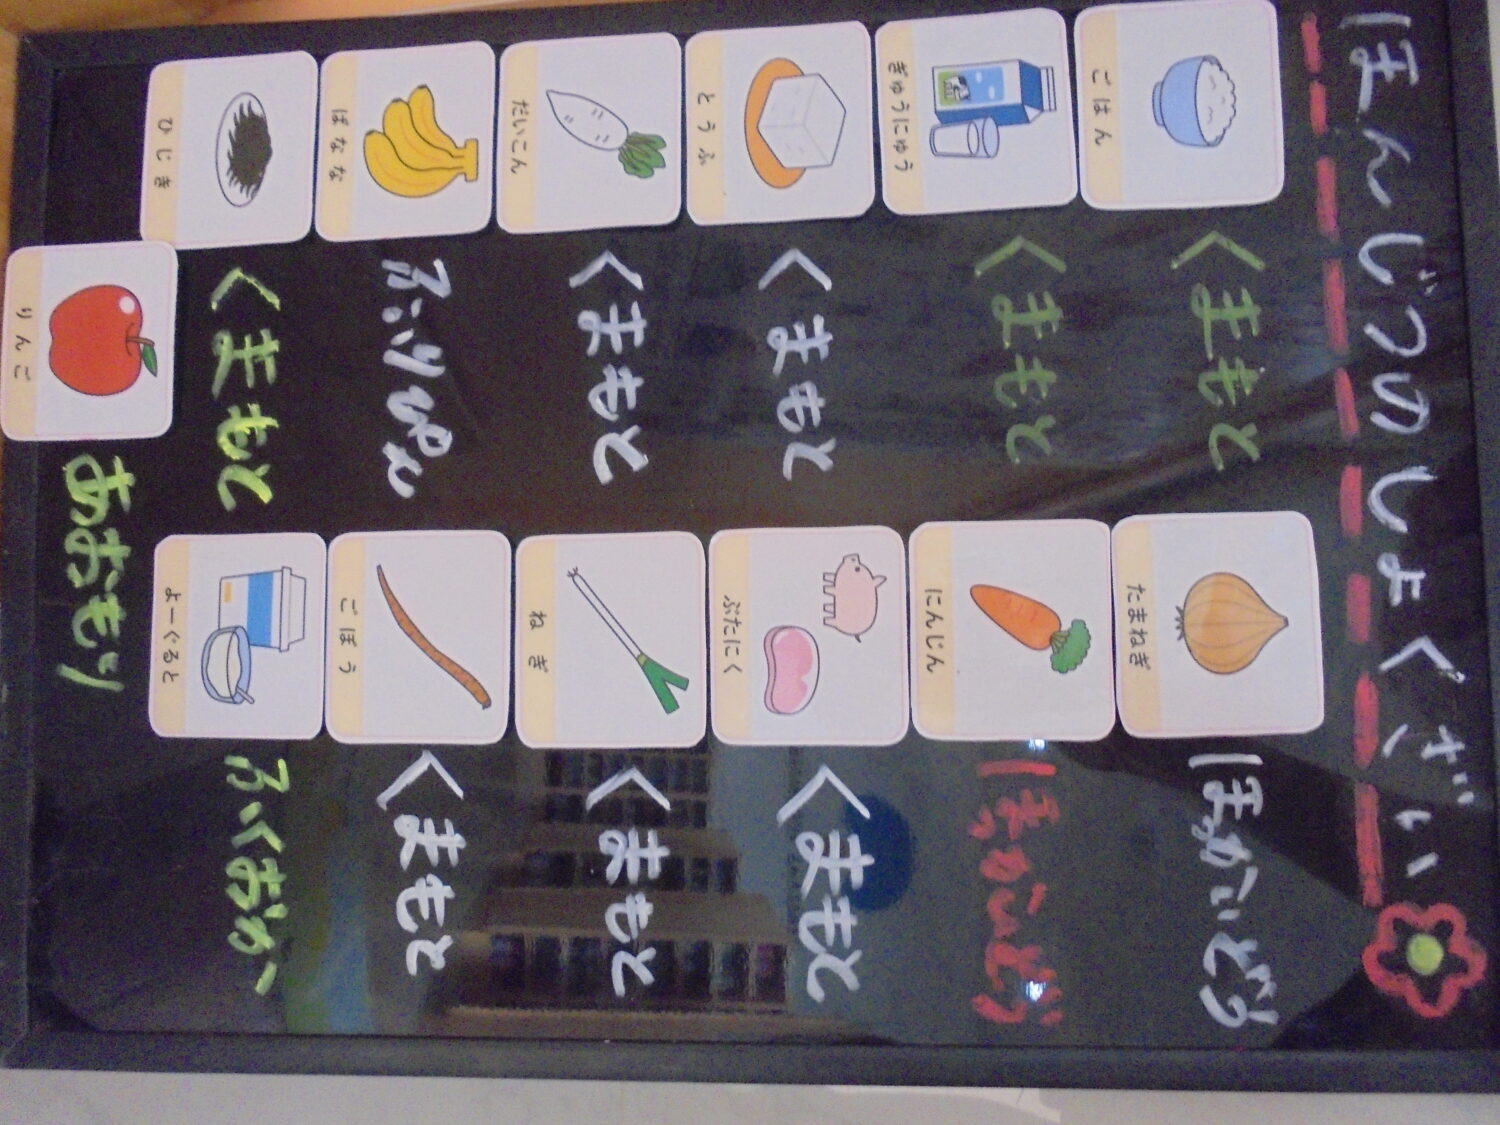 ほんじつのしょくざい
ごはん くまもと
ぎゅうにゅう くまもと
とうふ くまもと
だいこん くまもと
ばなな ふぃりぴん
ひじき くまもと
りんご あおもり
たまねぎ ほっかいどう
にんじん ほっかいどう
ぶたにく くまもと
ねぎ くまもと
ごぼう くまもと
よーぐると ふくおか